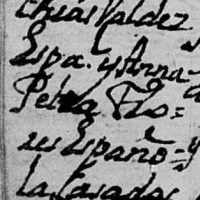 thias Valdez
Espa. y Anna
Petra Flo=
res Españo=y
la Casados